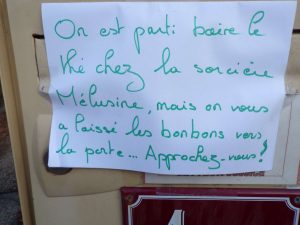 On est parti boire le
thé chez la sorcière
Mélusine, mais on vous
a laissé les bonbons vers
la porte... Approchez-vous!